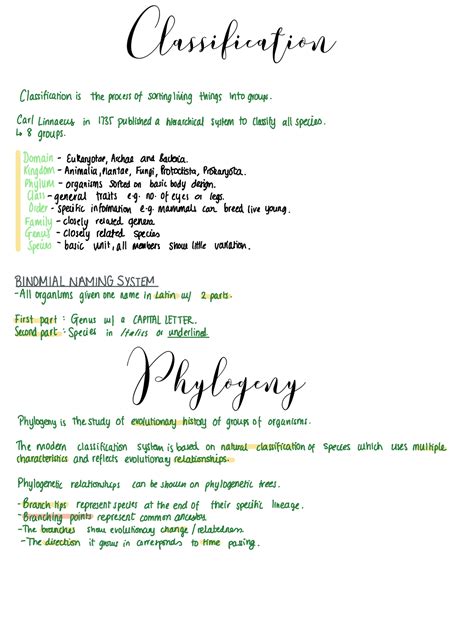 Classification
Classification is the process of sorting living things into groups.
Carl Linnaeus in 1735 published a hierarchical system to classify all species.
↳ 8 groups.
Domain - Eukaryotae, Archae and Bacteria.
Kingdom - Animalia, Plantae, Fungi, Protoctista, Prokaryota.
Phylum - organisms sorted on basic body design.
Class - general traits e.g. no. of eyes or legs.
Order - Specific information e.g. mammals can breed live young.
Family - closely related genera
Genus - closely related species
Species - basic unit, all members show little variation.
BINOMIAL NAMING SYSTEM
- All organisms given one name in Latin w/ 2 parts.
First part : Genus w/ a CAPITAL LETTER.
Second part : Species in Italics or underlined.
Phylogeny
Phylogeny is the study of evolutionary history of groups of organisms.
The modern classification system is based on natural classification of species which uses multiple
characteristics and reflects evolutionary relationships.
Phylogenetic relationships can be shown on phylogenetic trees.
- Branch tips represent species at the end of their specific lineage.
- Branching points represent common ancestor.
- The branches show evolutionary change / relatedness.
- The direction it grows in corresponds to time passing.